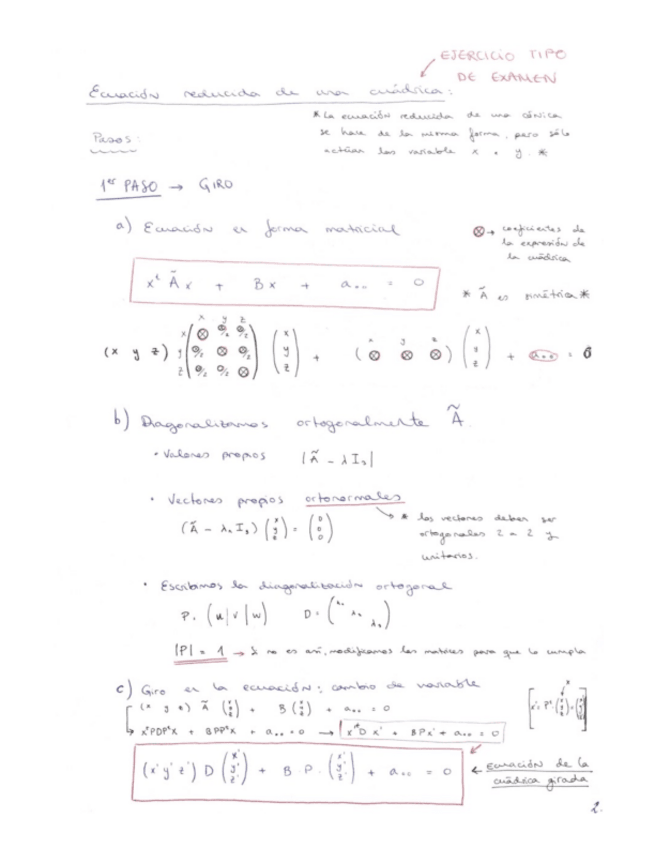 EJERCICIO TIPO
DE EXAMEN
Ecuación reducida de una cuádrica:
* La ecuación reducida de una cónica
se hace de la misma forma, pero sólo
actúan las variable x e y. *
Pasos:
1er PASO → GIRO
a) Ecuación en forma matricial
⊗ → coeficientes de
la expresión de
la cuádrica
xᵗ Ã x + B x + a₀₀ = 0
* Ã es simétrica *
x y z
(x y z) x y z (⊗ ⊗/2 ⊗/2 ⊗/2 ⊗ ⊗/2 ⊗/2 ⊗/2 ⊗) (x y z) + (⊗ ⊗ ⊗) (x y z) + a₀₀ = 0
b) Diagonalizamos ortogonalmente Ã.
• Valores propios |Ã - λ I₃|
• Vectores propios ortonormales
(Ã - λₙ I₃) (x y z) = (0 0 0)
* los vectores deben ser
ortogonales 2 a 2 y
unitarios.
• Escribimos la diagonalización ortogonal
P = (u | v | w) D = (λ₁ λ₂ λ₃)
|P| = 1 → Si no es así, modificamos las matrices para que lo cumpla
c) Giro en la ecuación: cambio de variable
(x y z) Ã (x y z) + B (x y z) + a₀₀ = 0
[x' = Pᵗ (x y z) = (x' y' z')]
xᵗPDPᵗx + BPPᵗx + a₀₀ = 0 → x'ᵗD x' + BPx' + a₀₀ = 0
(x' y' z') D (x' y' z') + B · P · (x' y' z') + a₀₀ = 0
← Ecuación de la
cuádrica girada
2.